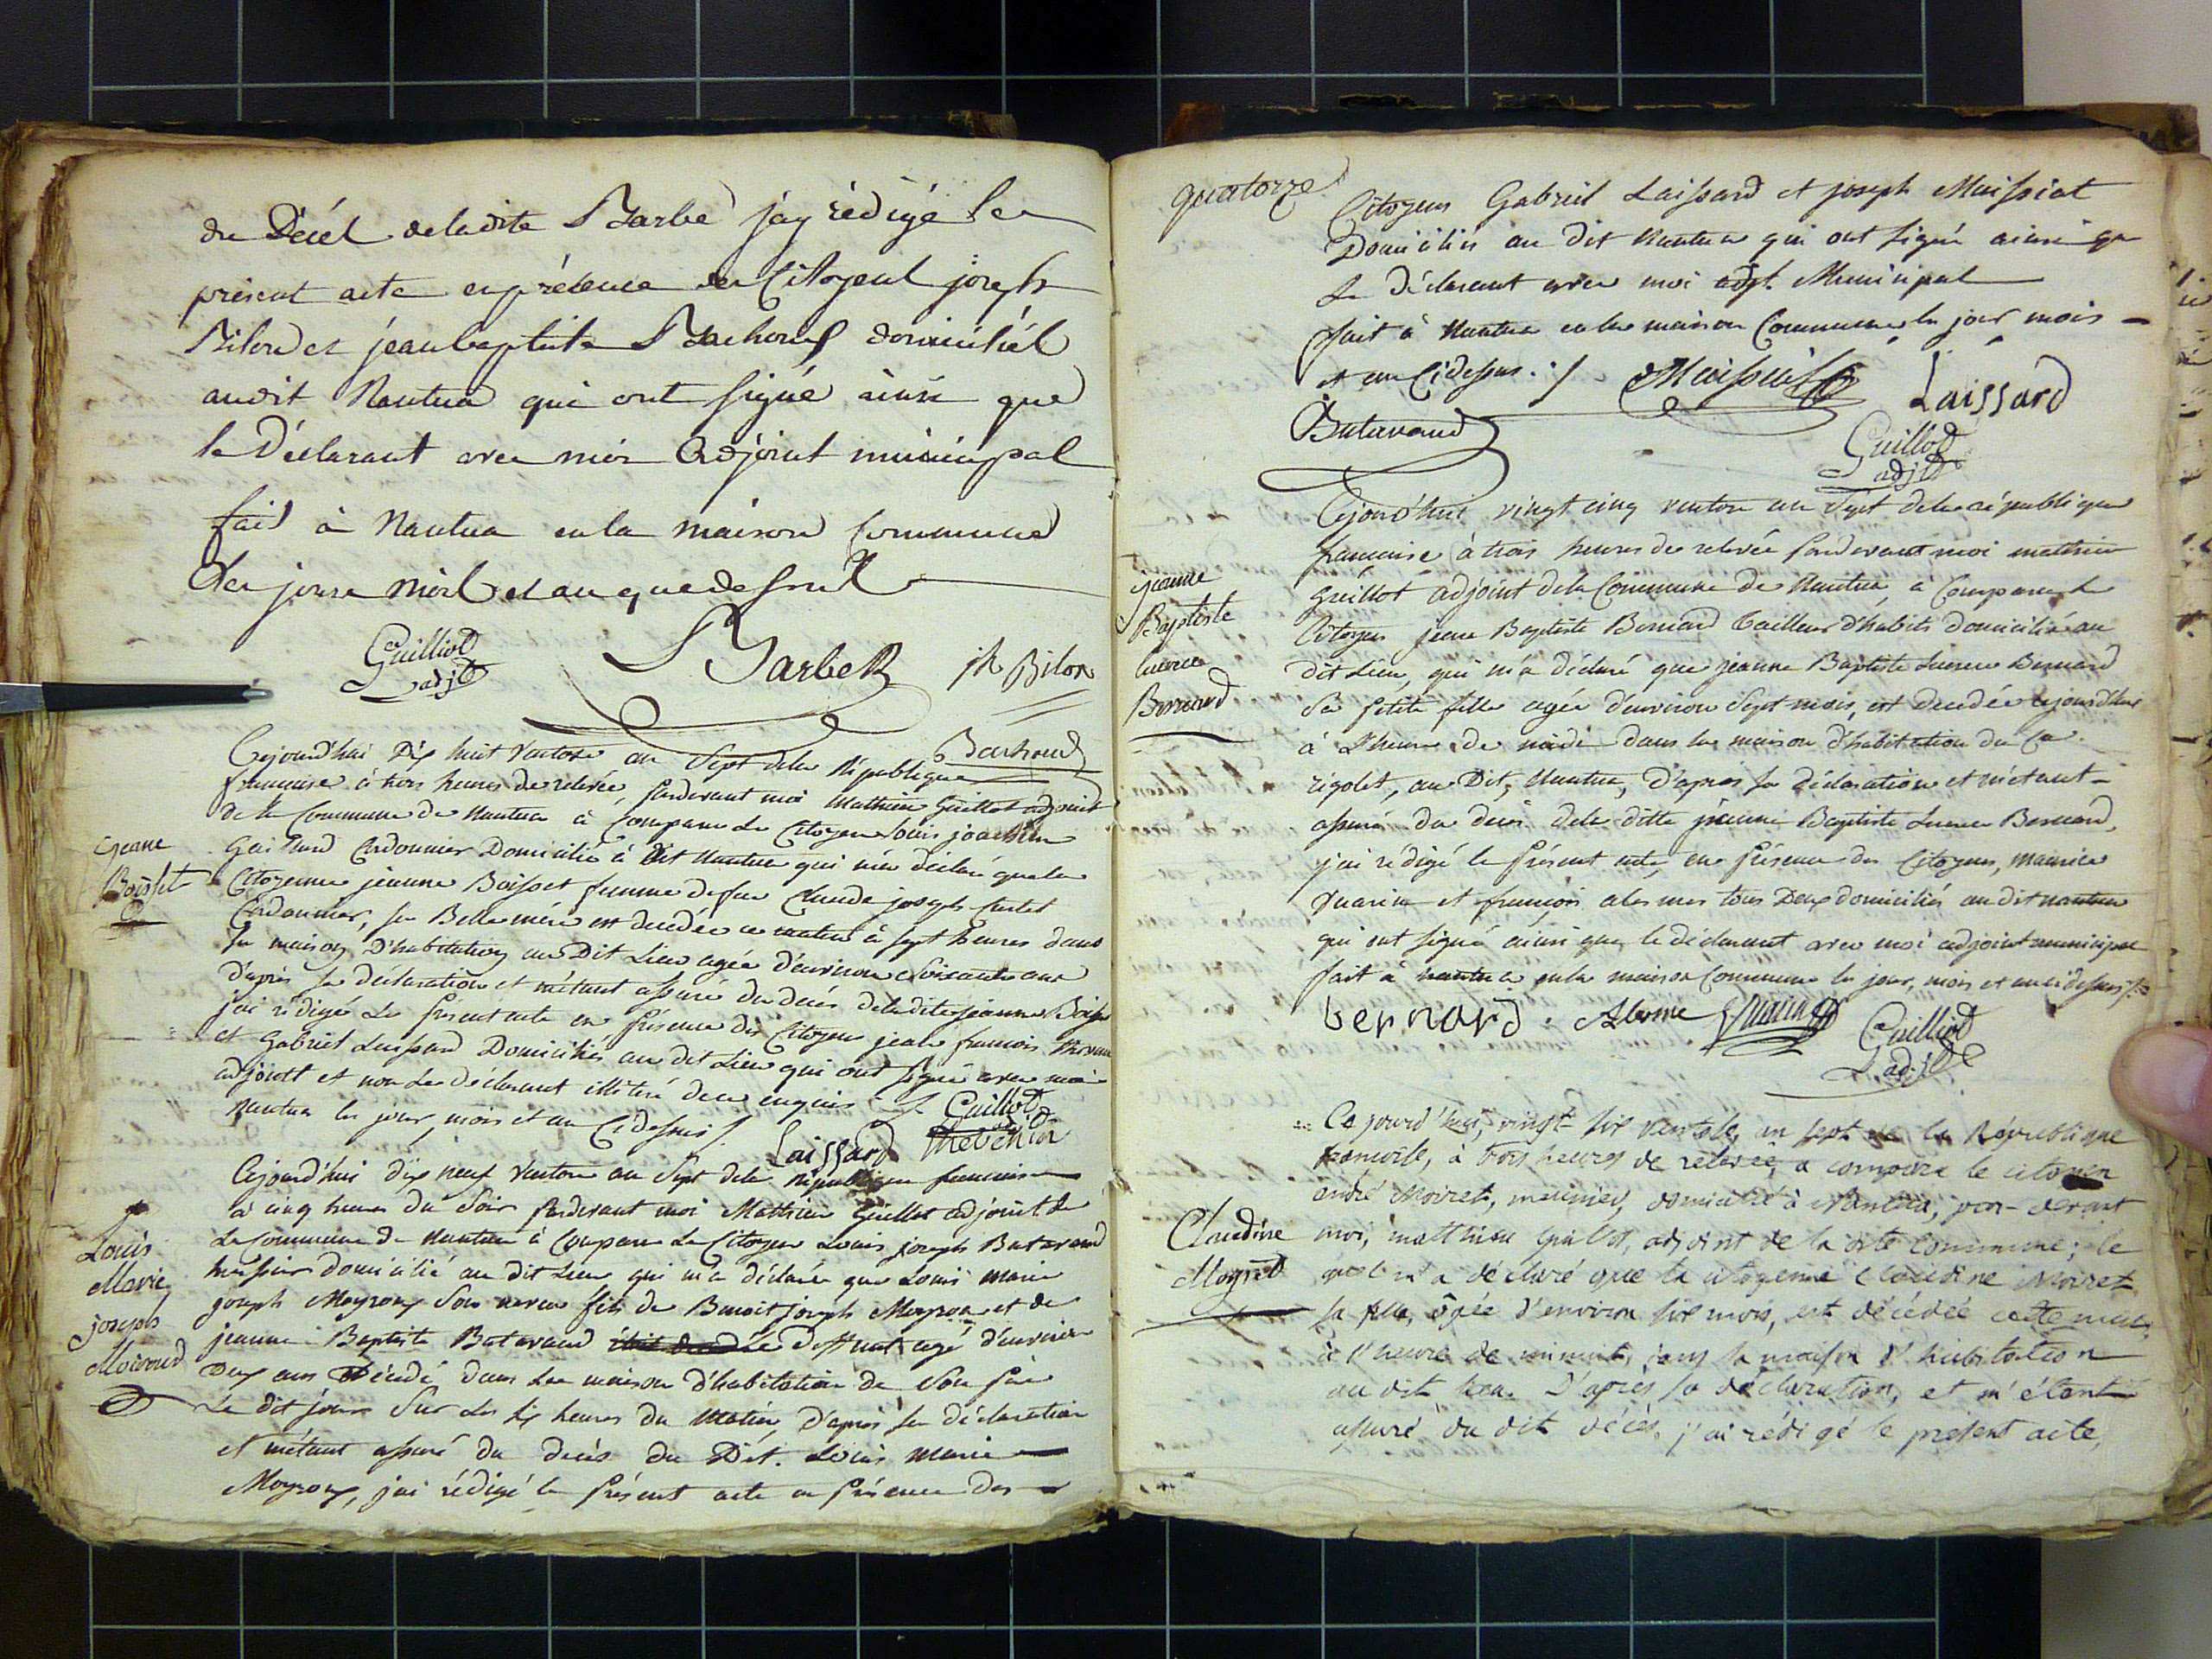 du Décès de ladite Barbe j'ay rédigé le
present acte en présence des Citoyens joseph
Bilon et jean baptiste Bachoud domiciliés
audit Nantua qui ont signé ainsi que
le Déclarant avec moi adjoint municipal
fait à Nantua en la maison Commune
les jours mois et an que dessus
Guilliot adjt Barbe jh Bilon
Bachoud
Cejourd'hui dix huit Ventose an Sept de la République
francaise à trois heures de relevée, pardevant moi Mathieu Guillot adjoint
de la Commune de Nantua à Comparu le Citoyen louis joachim
Gaillard Cordonnier Domicilié à dit Nantua qui m'a déclaré que la
jeanne
Boisset
Citoyenne jeanne Boisset femme de feu Claude joseph
Cordonnier, sa Belle mère est decedée ce matin à sept heures dans
sa maison D'habitation au Dit Lieu agée d'environ Soixante ans
d'après sa déclaration et m'étant assuré du decès de la dite jeanne Boisset
j'ai rédigé Le present acte en présence des Citoyens jean francois
et Gabriel Laissard Domiciliés au dit Lieu qui ont signé avec moi
adjoint et non Le déclarant illitéré de ce enquis
Nantua les jour, mois et an Cidessus /
Guillot adjt
Laissard
Cejourd'hui dix neuf Ventose an Sept de la République francaise
à cinq heures du Soir pardevant moi Mathieu Guillot adjoint de
La Commune de Nantua à Comparu Le Citoyen Louis joseph Batavaud
Louis
Marie
joseph
huissier domicilié au dit Lieu qui m'a déclaré que Louis Marie
joseph Moyroux Son neveu fils de Benoit joseph Moyroux et de
jeanne Baptiste Batavaud agé d'environ
Deux ans Décédé dans la maison d'habitation de Son père
Le dit jour Sur Les six heures du Matin, D'après sa déclaration
et m'étant assuré du decès du Dit. Louis Marie
Moyroux, j'ai rédigé le présent acte en présence des
quatorze
Citoyens Gabriel Laissard et joseph Maissiat
Domiciliés au dit Nantua qui ont signé ainsi que
Le Déclarant avec moi adjt. Municipal
fait à Nantua en la maison Commune, les jour mois
et an Cidessus. / Maissiat Laissard
Batavaud
Guillot
adjt
Cejourd'hui vingt cinq ventose an Sept de la république
francaise à trois heures de relevée pardevant moi mathieu
jeanne
Baptiste
lucrece
Bernard
Guillot adjoint de la Commune de Nantua, à Comparu le
Citoyen jean Baptiste Bernard Tailleur d'habits domicilié au
dit Lieu, qui m'a déclaré que jeanne Baptiste Lucrece Bernard
Sa petite fille agée d'environ Sept mois, est decedée cejourd'hui
à L'heure de midi dans la maison d'habitation du Cn
rigolet, au Dit, Nantua, D'après sa déclaration et m'étant
assuré du decès de la ditte jeanne Baptiste Lucrece Bernard,
j'ai rédigé le présent acte, en présence des Citoyens, Maurice
et françois alesme tous Deux domiciliés au dit nantua
qui ont signé ainsi que le déclarant avec moi adjoint municipal
fait à nantua en la maison Commune les jour, mois et an cidessus /
bernard. Alesme Guilliot
adjt
Ce jourd'hui, vingt-six ventose, an sept de la République
francoise, à trois heures de relevée, a comparu le citoyen
andré Moiret, meunier, domicilié à Nantua, par-devant
Claudine
Moyret
moi, matthieu Guillot, adjoint de la dite commune; le
quel m'a déclaré que la citoyenne Claudine Moiret
sa fille, âgée d'environ six mois, est décédée cette nuit,
à l'heure de minuit, dans sa maison d'habitation
au dit lieu. D'après sa déclaration, et m'étant
assuré du dit décès, j'ai rédigé le présent acte,